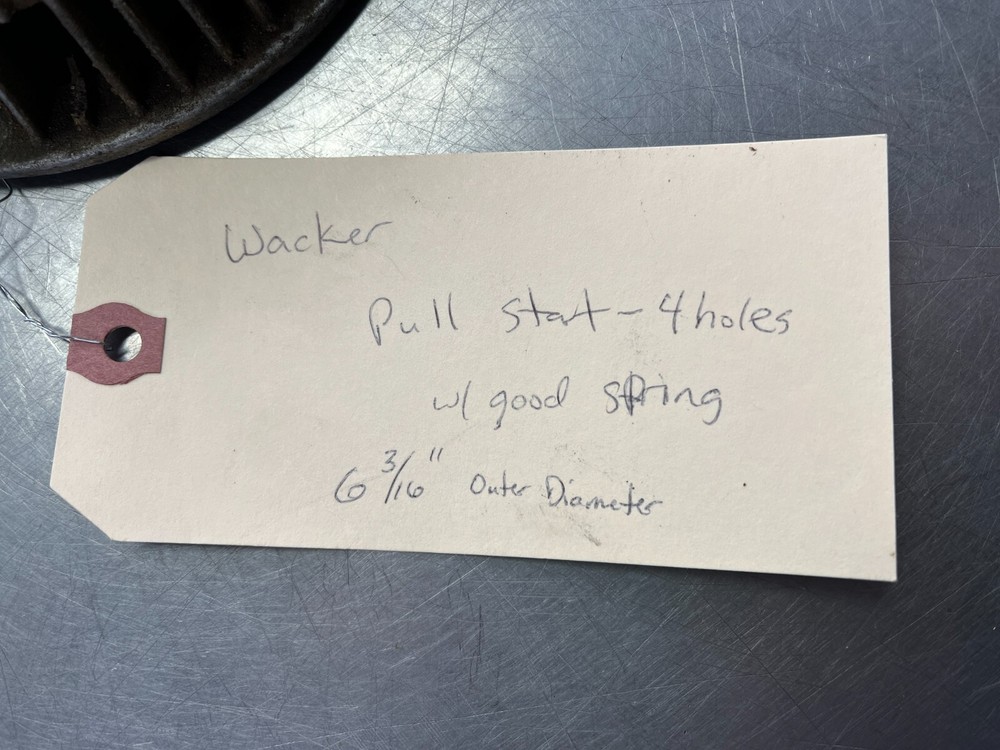 Wacker
Pull start - 4 holes
w/ good spring
6 3/16" Outer Diameter